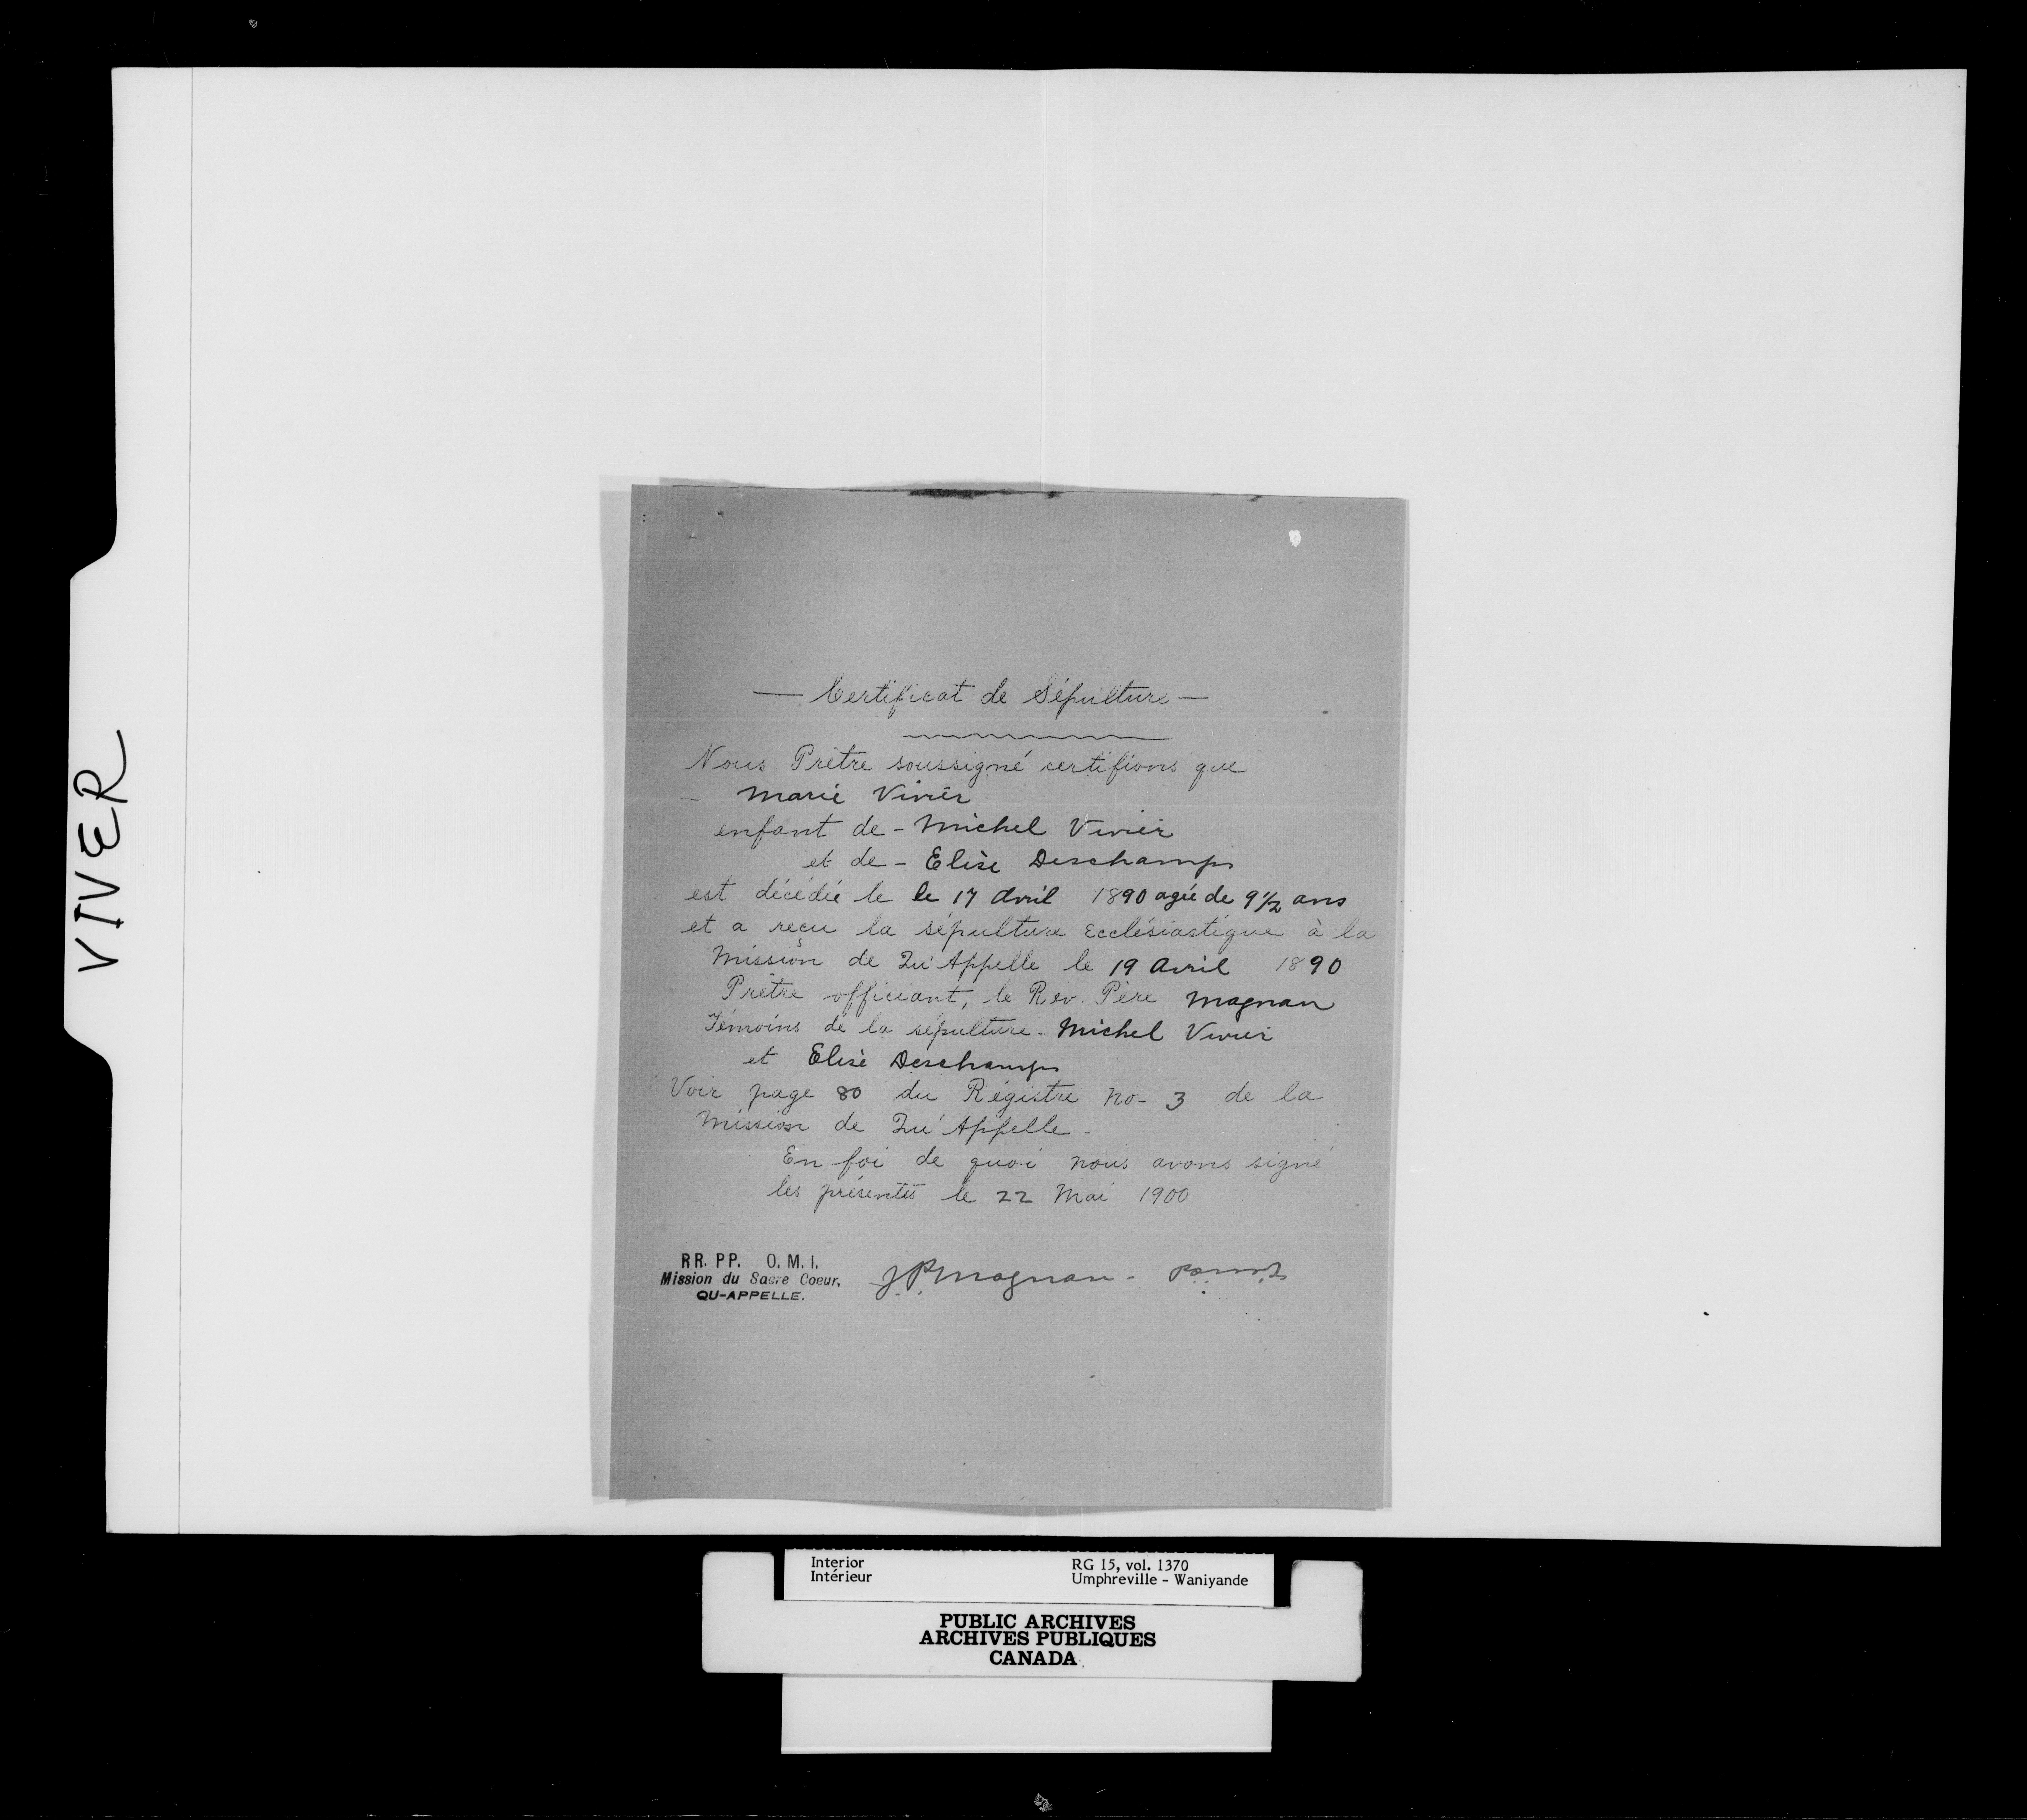 VIVER
— Certificat de Sépulture —
Nous Prêtre soussigné certifions que
— Marie Vivier
enfant de - Michel Vivier
et de - Elise Deschamps
est décédée le le 17 Avril 1890 agée de 9 1/2 ans
et a reçu la sépulture Ecclésiastique à la
Mission de Qu'Appelle le 19 Avril 1890
Prêtre officiant, le Rev. Père Magnan
Témoins de la sépulture - Michel Vivier
et Elise Deschamps
Voir page 80 du Régistre No- 3 de la
Mission de Qu'Appelle -
En foi de quoi nous avons signé
les présentes le 22 Mai 1900
RR. PP. O. M. I.
Mission du Sacre Coeur,
QU-APPELLE.
J.P. Magnan -
Interior
Intérieur
RG 15, vol. 1370
Umphreville - Waniyande
PUBLIC ARCHIVES
ARCHIVES PUBLIQUES
CANADA